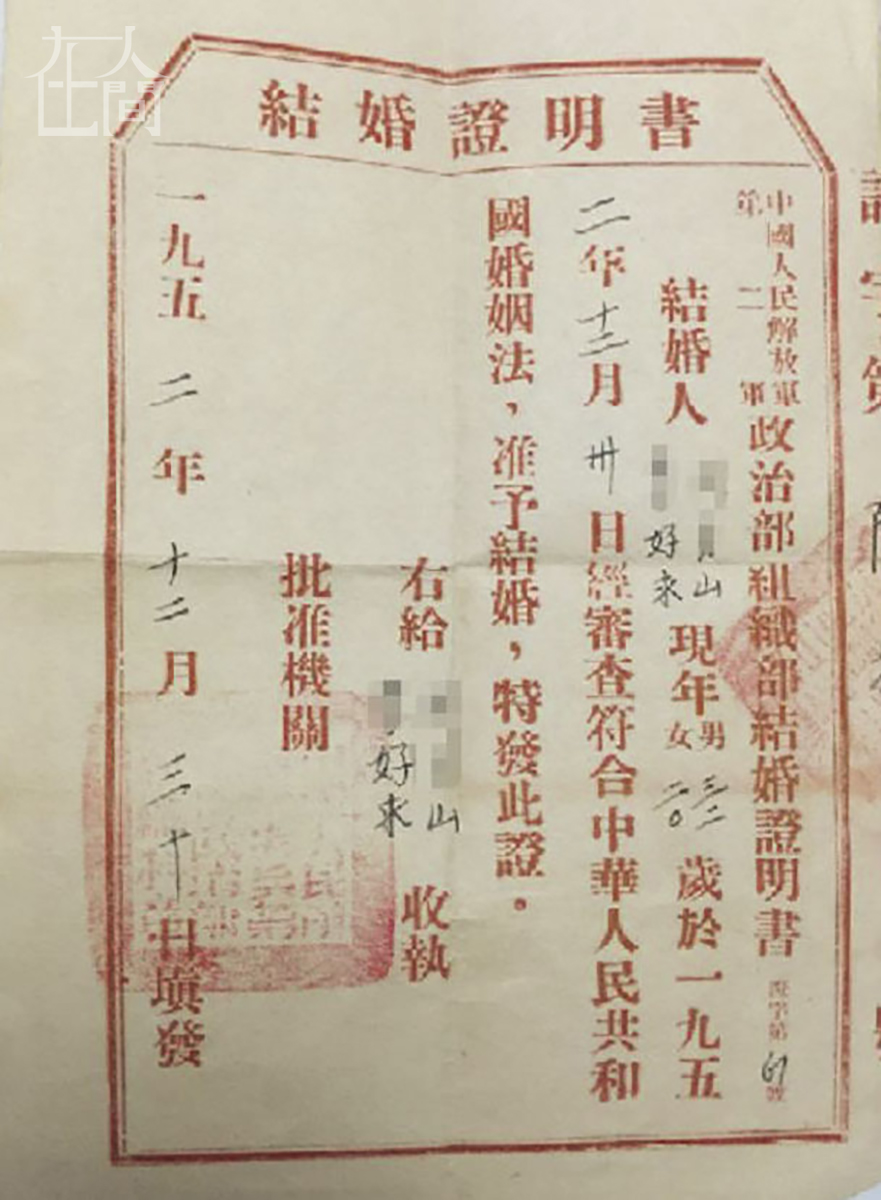 在人間
結婚證明書
中國人民解放軍
第二軍
政治部組織部結婚證明書
證字第61號
結婚人
山
好來
現年
男三二
女二〇
歲於一九五
二年十二月卅日經審查符合中華人民共和
國婚姻法，准予結婚，特發此證。
右給
山
好來
收執
批准機關
一九五二年十二月三十日填發